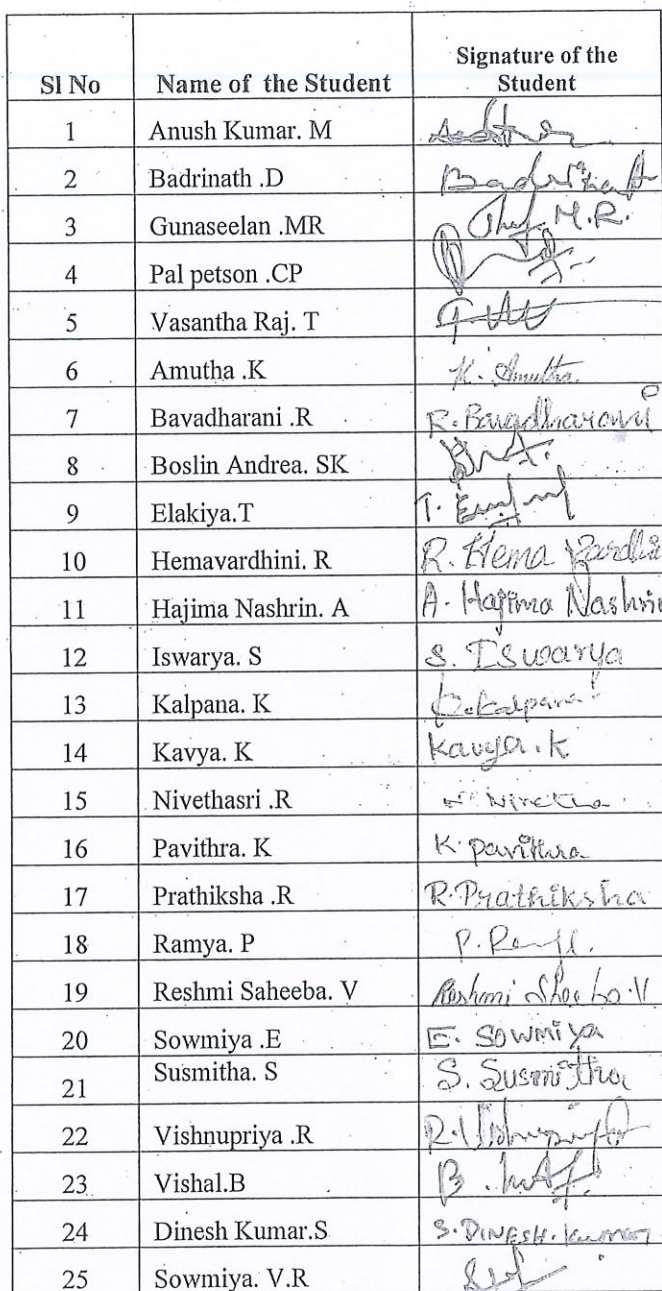 Sl No Name of the Student Signature of the Student
1 Anush Kumar. M
2 Badrinath .D Badrinath
3 Gunaseelan .MR M.R.
4 Pal petson .CP
5 Vasantha Raj. T
6 Amutha .K K. Amutha.
7 Bavadharani .R R. Bavadharani
8 Boslin Andrea. SK
9 Elakiya.T T.
10 Hemavardhini. R R. Hema Vardhi
11 Hajima Nashrin. A A. Hajima Nashrin
12 Iswarya. S S. Iswarya
13 Kalpana. K K. Kalpana
14 Kavya. K Kavya. K
15 Nivethasri .R Nivetha
16 Pavithra. K K. Pavithra
17 Prathiksha .R R. Prathiksha
18 Ramya. P P.
19 Reshmi Saheeba. V Reshmi Sheeba. V
20 Sowmiya .E E. Sowmiya
21 Susmitha. S S. Susmitha
22 Vishnupriya .R R. Vishnupriya
23 Vishal.B B.
24 Dinesh Kumar.S S. DINESH. Kumar
25 Sowmiya. V.R